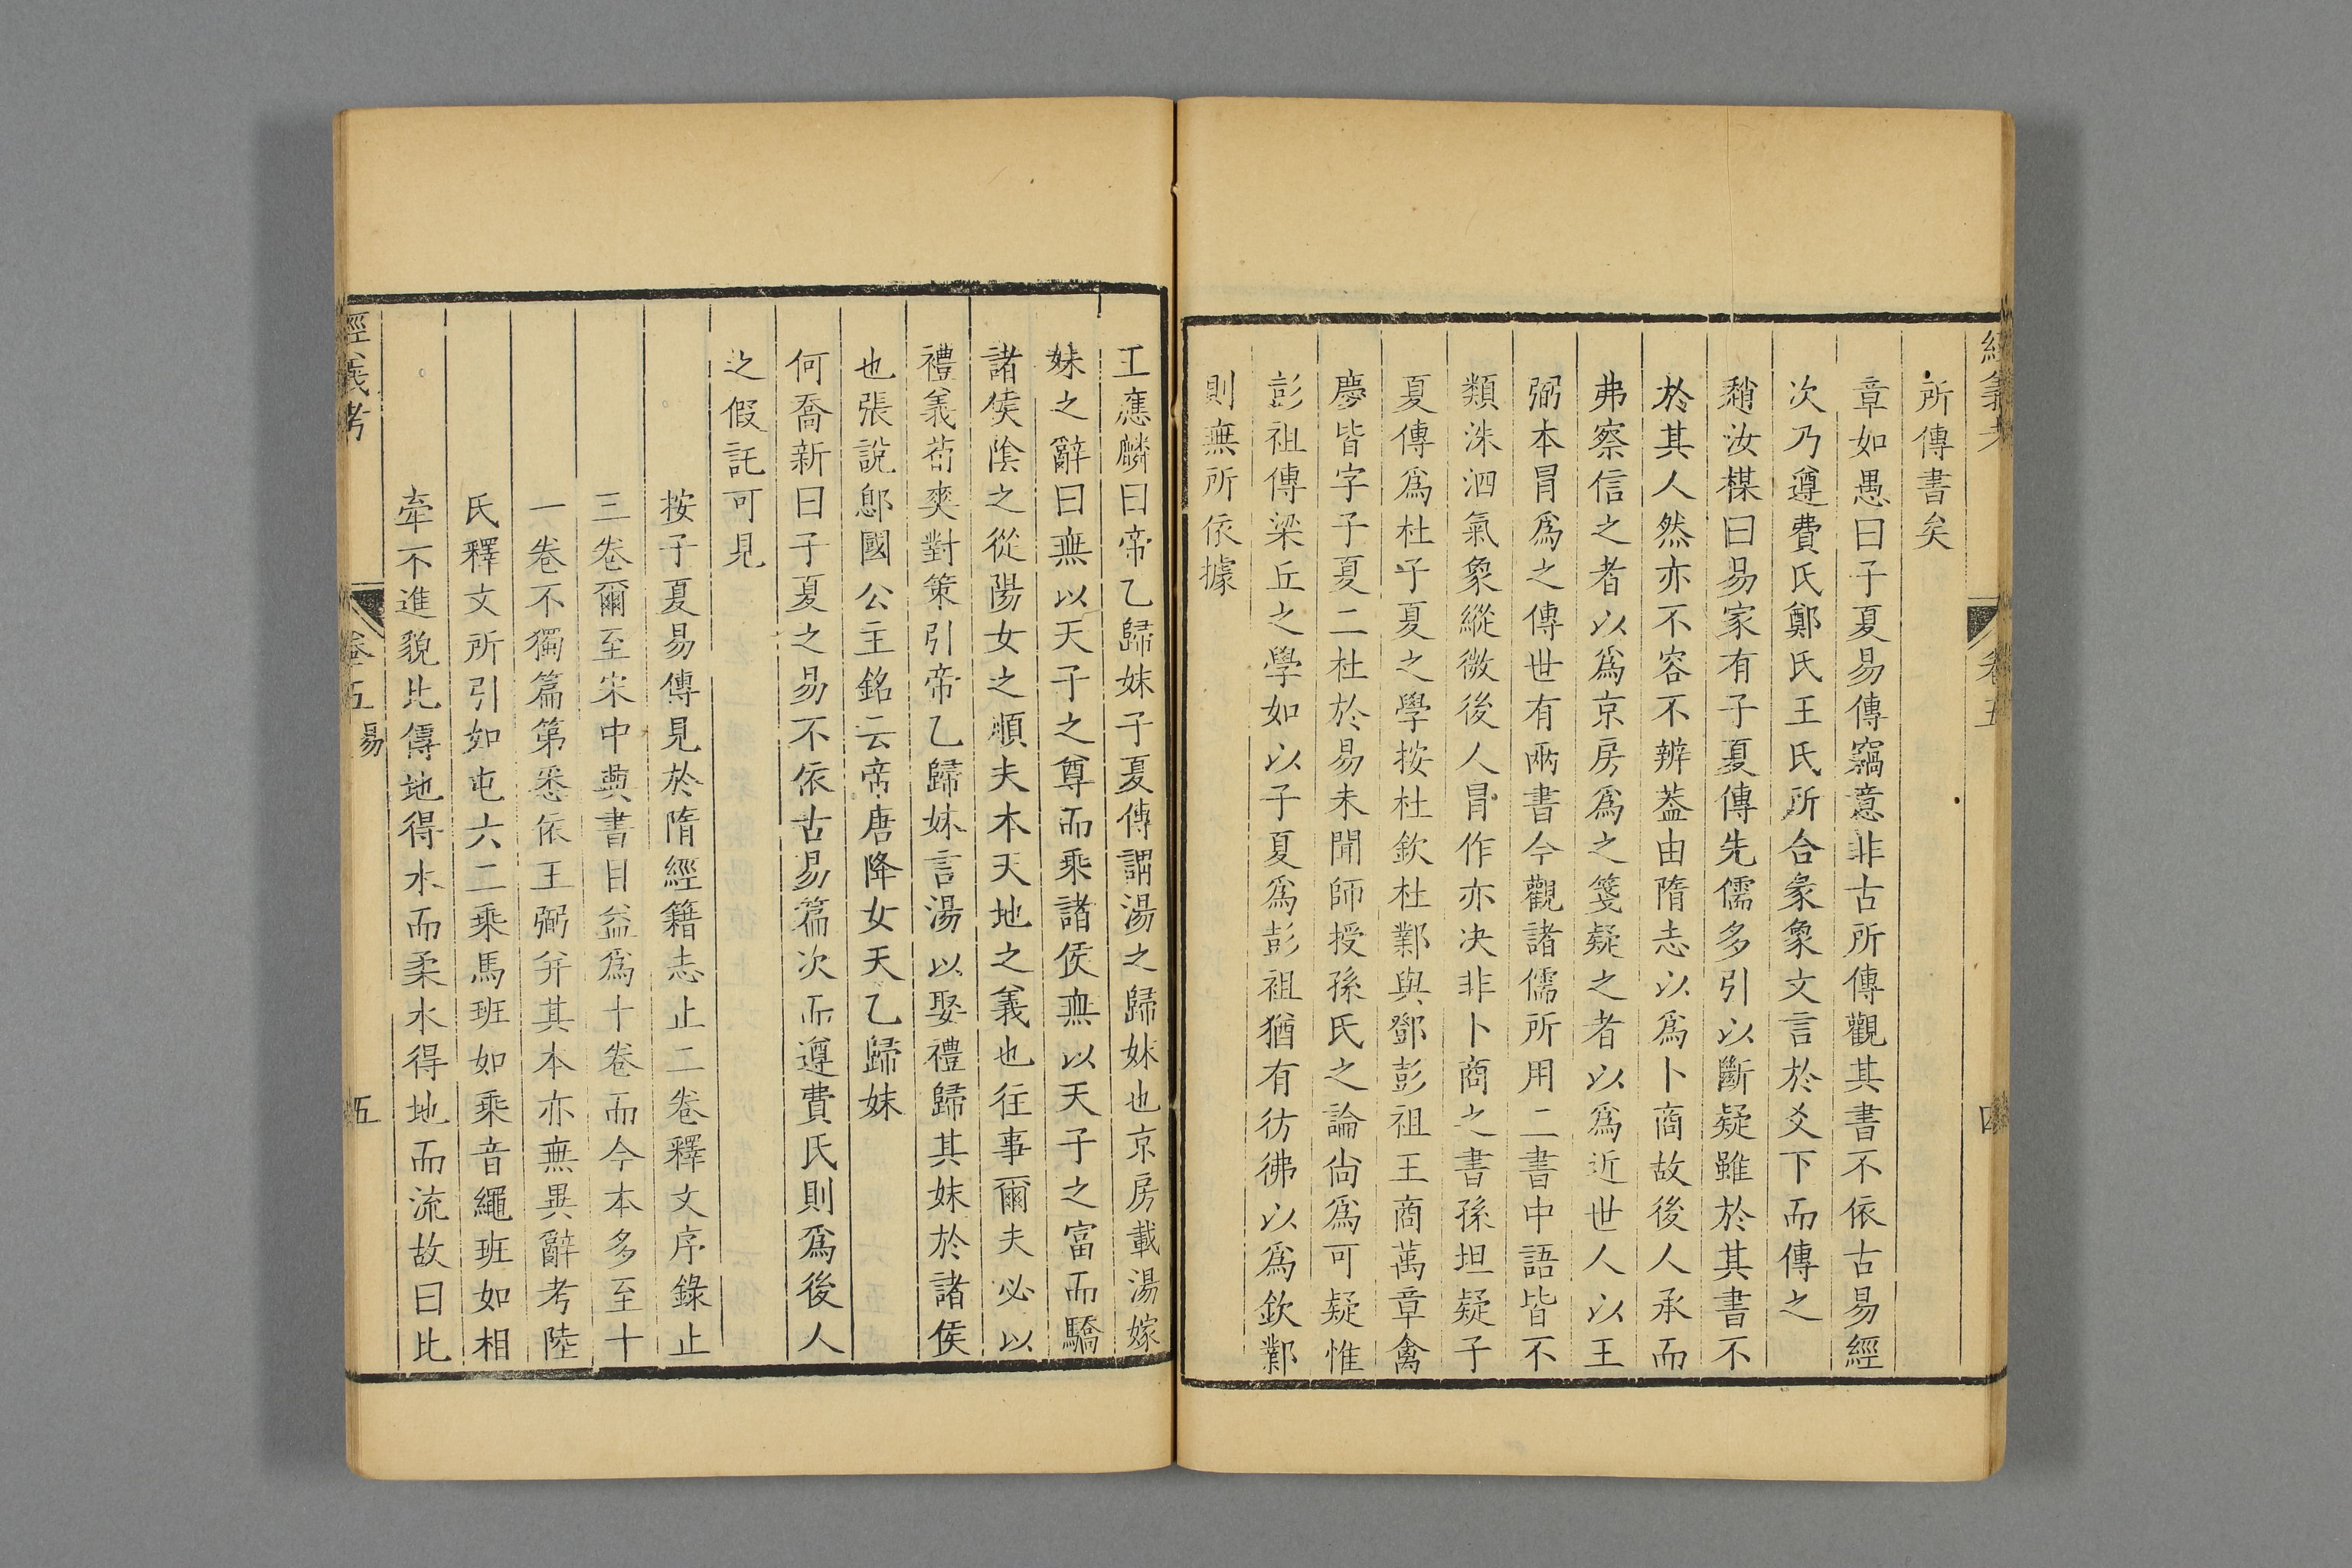 經義考
卷五
四
所傳書矣
章如愚曰子夏易傳竊意非古所傳觀其書不依古易經
次乃遵費氏鄭氏王氏所合彖象文言於爻下而傳之
趙汝楳曰易家有子夏傳先儒多引以斷疑雖於其書不
於其人然亦不容不辨葢由隋志以爲卜商故後人承而
弗察信之者以爲京房爲之箋疑之者以爲近世人以王
弼本冐爲之傳世有兩書今觀諸儒所用二書中語皆不
類洙泗氣象縱微後人冐作亦决非卜商之書孫坦疑子
夏傳爲杜子夏之學按杜欽杜鄴與鄧彭祖王商萬章禽
慶皆字子夏二杜於易未聞師授孫氏之論尙爲可疑惟
彭祖傳梁丘之學如以子夏爲彭祖猶有彷彿以爲欽鄴
則無所依據
王應麟曰帝乙歸妹子夏傳謂湯之歸妹也京房載湯嫁
妹之辭曰無以天子之尊而乘諸侯無以天子之富而驕
諸侯陰之從陽女之順夫本天地之義也往事爾夫必以
禮義荀爽對策引帝乙歸妹言湯以娶禮歸其妹於諸侯
也張說鄎國公主銘云帝唐降女天乙歸妹
何喬新曰子夏之易不依古易篇次而遵費氏則爲後人
之假託可見
按子夏易傳見於隋經籍志止二卷釋文序錄止
三卷爾至宋中興書目益爲十卷而今本多至十
一卷不獨篇第悉依王弼并其本亦無異辭考陸
氏釋文所引如屯六二乘馬班如乘音繩班如相
牽不進貌比傳地得水而柔水得地而流故曰比
經義考
卷五
易
五